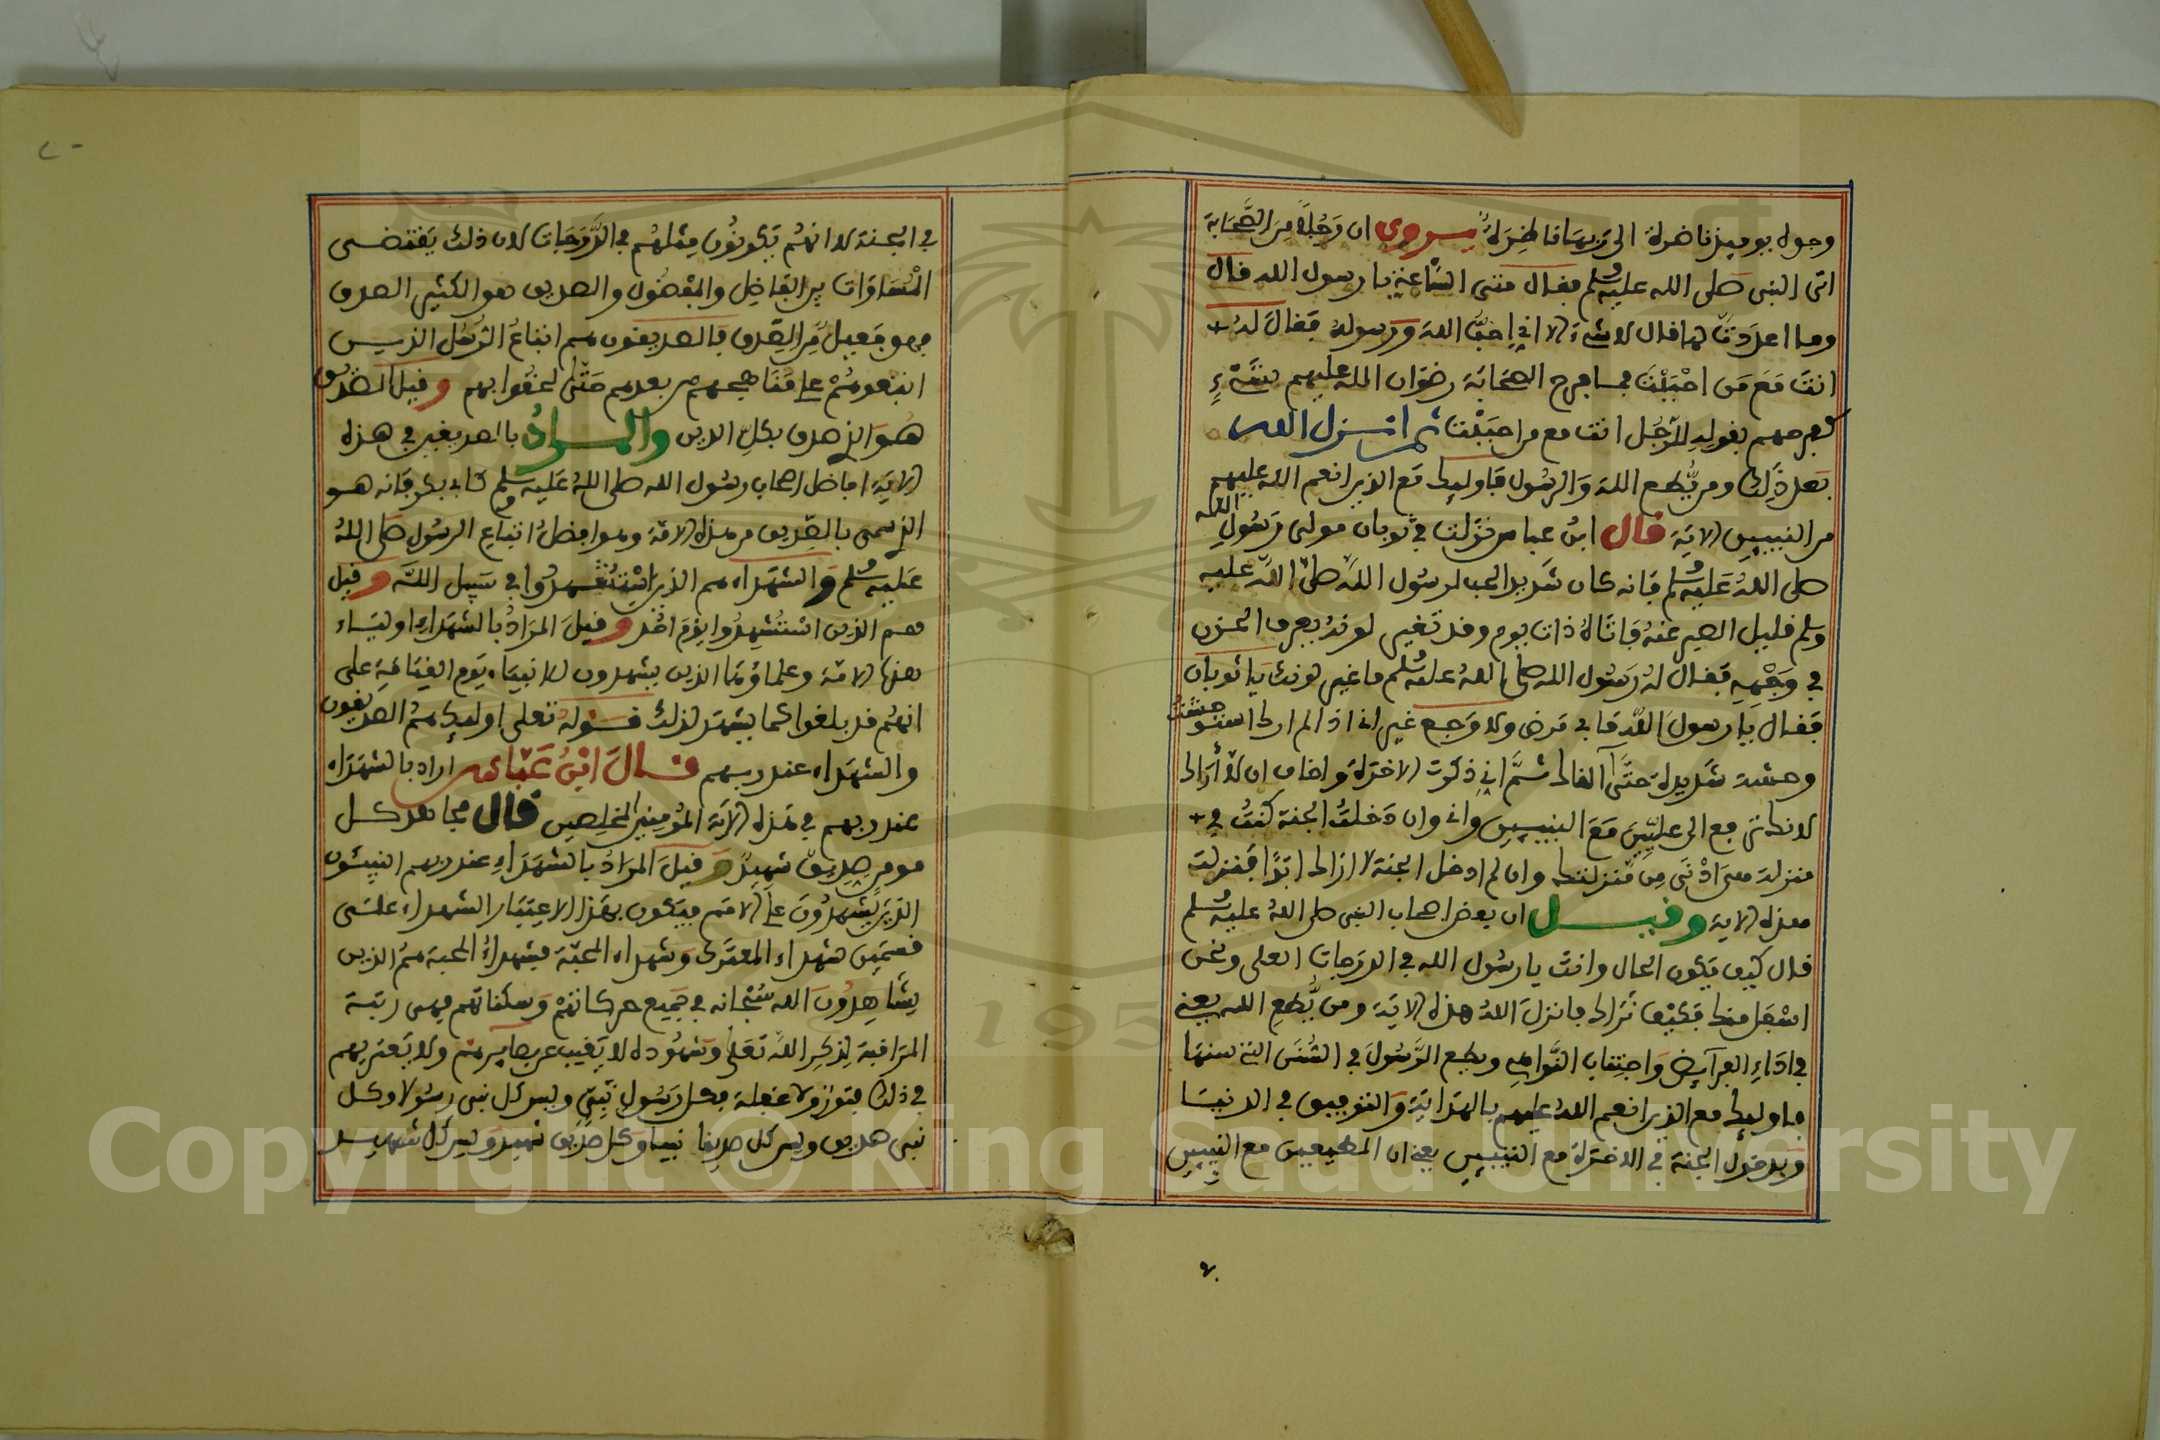 وجوه يومئذ ناضرة الى ربها ناظرة يروى ان رجلا من الصحابة
اتى النبي صلى الله عليه وسلم فقال متى الساعة يا رسول الله قال
وما اعددت لها قال لا شيء الا اني احب الله ورسوله فقال له
انت مع من احببت فما فرح الصحابة رضوان الله عليهم بشيء
كفرحهم بقوله للرجل انت مع من احببت ثم انزل الله
بعد ذلك ومن يطع الله والرسول فاوليك مع الذين انعم الله عليهم
من النبيين الاية قال ابن عباس نزلت في ثوبان مولى رسول الله
صلى الله عليه وسلم فانه كان شديد الحب لرسول الله صلى الله عليه
وسلم قليل الصبر عنه فاتاه ذات يوم وقد تغير لونه يعرف الحزن
في وجهه فقال له رسول الله صلى الله عليه وسلم ما غير لونك يا ثوبان
فقال يا رسول الله ما بي مرض ولا وجع غير اني اذا لم ارك استوحشت
وحشة شديدة حتى القاك ثم اني ذكرت الاخرة واخاف ان لا أراك
لانك ترفع الى عليين مع النبيين واني وان دخلت الجنة كنت في
منزلة هي ادنى من منزلتك وان لم ادخل الجنة لا اراك ابدا فنزلت
هذه الاية وقيل ان بعض اصحاب النبي صلى الله عليه وسلم
قال كيف يكون الحال وانت يا رسول الله في الدرجات العلى ونحن
اسفل منك فكيف نراك فانزل الله هذه الاية ومن يطع الله يعني
في اداء الفرآيض واجتناب النواهي ويطع الرسول في السنن التي سنها
فاوليك مع الذين انعم الله عليهم بالهداية والتوفيق في الدنيا
وبدخول الجنة في الاخرة مع النبيين يعني ان المطيعين مع النبيين
في الجنة لا انهم يكونون مثلهم في الدرجات لان ذلك يقتضي
المساوات بين الفاضل والمفضول والصديق هو الكثير الصدق
فهو فعيل من الصدق فالصديقون هم اتباع الرسل الذين
اتبعوهم على مناهجهم بعدهم حتى لحقوا بهم وقيل الصديق
هو الذي صدق بكل الدين والمراد بالصديقين في هذه
الاية افاضل اصحاب رسول الله صلى الله عليه وسلم كابي بكر فانه هو
الذي سمي بالصديق من هذه الامة وهو افضل اتباع الرسول صلى الله
عليه وسلم والشهداء هم الذين استشهدوا في سبيل الله وقيل
هم الذين استشهدوا يوم احد وقيل المراد بالشهداء اولياء
هذه الامة وعلماؤها الذين يشهدون للانبياء يوم القيامة على
انهم قد بلغوا كما يشهد لذلك قوله تعلى اوليك هم الصديقون
والشهداء عند ربهم قال ابن عباس اراد بالشهداء
عند ربهم في هذه الاية المؤمنين المخلصين قال مجاهد كل
مومن صديق شهيد وقيل المراد بالشهداء عند ربهم النبيئون
الذين يشهدون على الامم فيكون بهذا الاعتبار الشهداء على
قسمين شهداء المعترك وشهداء المحبة فشهداء المحبة هم الذين
يشاهدون الله سبحانه في جميع حركاتهم وسكناتهم فهي رتبة
المراقبة لذكر الله تعلى وشهوده لا يغيب عن بصايرهم ولا يعتريهم
في ذلك فتور ولا غفلة فكل رسول نبي وليس كل نبي رسولا وكل
نبي صديق وليس كل صديق نبيا وكل صديق شهيد وليس كل شهيد
Copyright © King Saud University